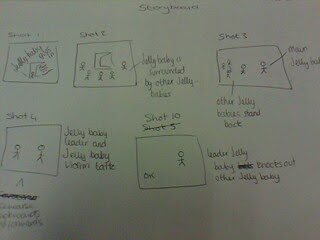 Storyboard
Shot 1
Jelly baby
Shot 2
Jelly baby is
surrounded
by other jelly
babies
Shot 3
main
Jelly bab
other Jelly
babies stand
back
Shot 4
Jelly baby
leader and
Jelly baby
Shot 10
Shot 5
leader Jelly
baby knocks out
other Jelly baby